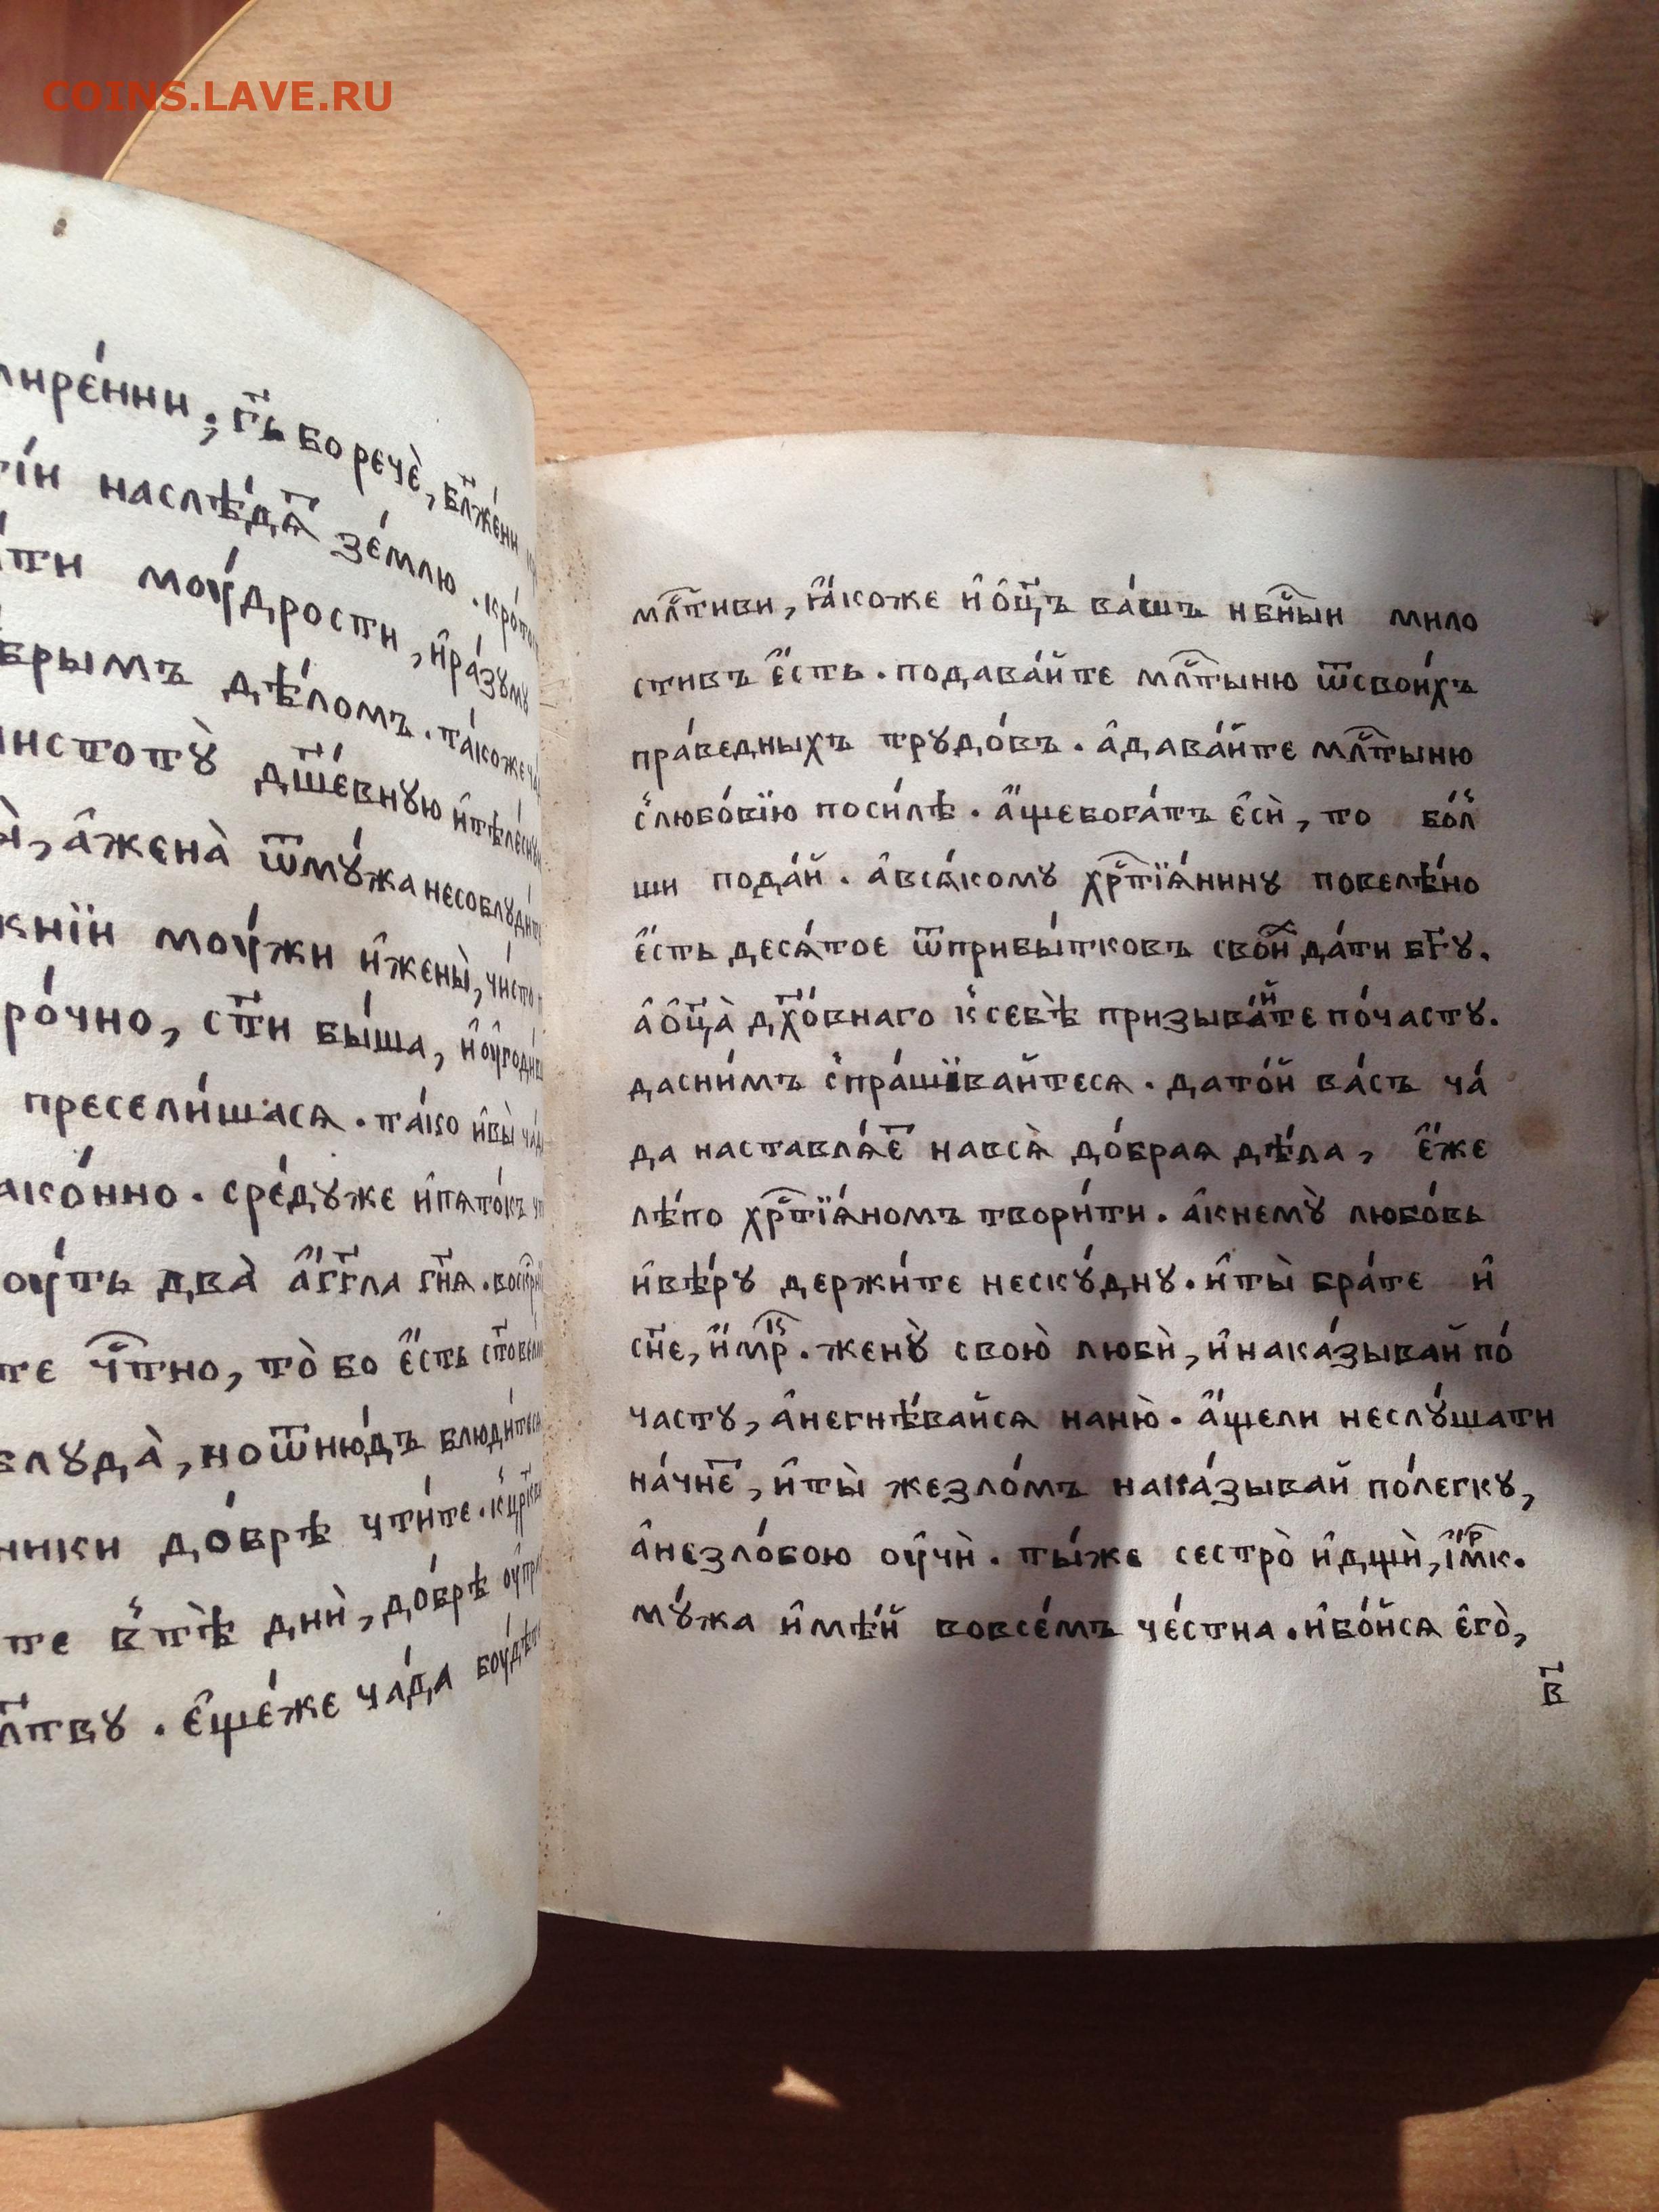 COINS.LAVE.RU
гдⷭ҇ь бо речѐ, бл҃же́ни
наслѣ́дѧⷮ зе́млю .
моу́дрости, и҆ра́зуму
дѣ́ломъ . та́коже
дш҃е́вную
а҆жена̀ ѿму́жа несоблуди́тъ
моу́жи и҆жены̀, чи́сто
ро́чно, ст҃и бы́ша,
пресели́шася . та́ко и҆вы̀
ако́нно . сре́дуже и҆пѧто́къ
два̀ а҆́гг҃ла гн҃ѧ .
те чⷭ҇тно, то̀ бо є҆́сть
блуда̀, ноѿню́дъ блюди́теся
до́брѣ чти́те .
днѝ, до́брѣ
. є҆ще́же ча́да
млⷭ҇тиви, ꙗ҆́коже и҆ ѻ҆ц҃ъ ва́шъ нбⷭ҇ныи мило
стивъ є҆́сть . подава́йте млⷭ҇тыню ѿсвои́хъ
пра́ведныхъ трудо́въ . а҆дава́йте млⷭ҇тыню
слюбо́вїю поси́лѣ . а҆́щебога́тъ є҆сѝ, то бо́л
ши пода́й . а҆всѧ́кому хрⷭ҇тїѧ́нину повелѣ́но
є҆́сть десѧ́тое ѿприбы́тковъ свои́ⷯ да́ти бг҃у .
а҆ѻ҆ц҃а̀ дх҃о́внаго ксебѣ̀ призыва́йте по́часту .
дасни́мъ спра́шивайтеся . дато́й ва́съ ча́
да наставлѧ́еⷮ навсѧ̀ до́браѧ дѣ́ла, є҆́же
лѣ́по хрⷭ҇тїѧ́номъ твори́ти . а҆кнему̀ любо́вь
и҆вѣ́ру держи́те неску́дну . и҆ты̀ бра́те и҆
сн҃е, и҆́мрⷦ҇ . жену̀ свою̀ любѝ, и҆нака́зывай по́
часту, а҆негнѣ́вайсѧ наню̀ . а҆́щели неслу́шати
на́чнеⷮ, и҆ты̀ жезло́мъ нака́зывай по́легку,
а҆незло́бою оу҆чѝ . ты́же сестро̀ и҆дщѝ, і҆́мⷬ҇к .
му́жа и҆мѣ́й вовсе́мъ че́стна . и҆бо́йсѧ є҆го̀,
в҃і